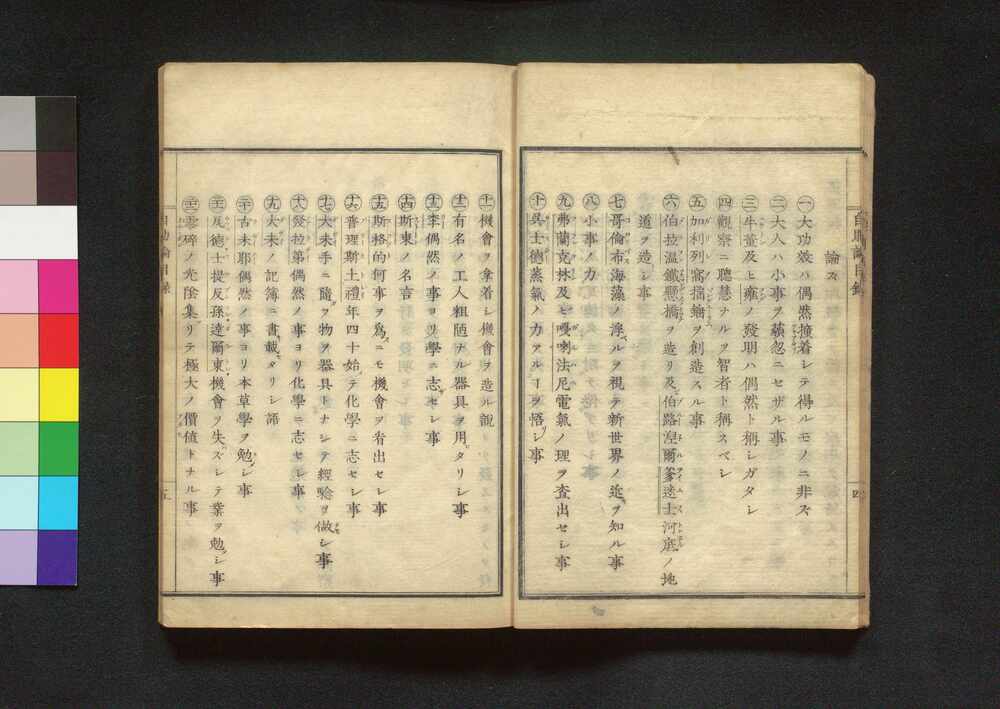 自助論目錄
四
論ス
㊀大功效ハ偶然撞着シテ得ルモノニ非ズ
㊁大人ハ小事ヲ藐忽ニセザル事
㊂牛董及ヒ雍ノ發明ハ偶然ト稱シガタシ
㊃觀察ニ聰慧ナルヲ智者ト稱スベシ
㊄加利列窩擺錘ヲ創造スル事
㊅伯拉溫鐵懸橋ヲ造リ及伯路涅爾爹迷士河底ノ地
道ヲ造シ事
㊆哥倫布海藻ノ浮ベルヲ視テ新世界ノ近ヲ知ル事
㊇小事ノ力
㊈弗蘭克林及ヒ嘎喇法尼電氣ノ理ヲ査出セシ事
㊉吳士德蒸氣ノ力アルヿヲ悟シ事
機會ヲ拿着シ機會ヲ造ル說
有名ノ工人粗陋ナル器具ヲ用タリシ事
李偶然ノ事ヨリ學ニ志セシ事
斯東ノ名言
斯格的何事ヲ爲ニモ機會ヲ看出セシ事
普理斯土禮年四十始テ化學ニ志セシ事
大未手ニ隨フ物ヲ器具トナシテ經驗ヲ做シ事
發拉第偶然ノ事ヨリ化學ニ志セシ事
大未ノ記簿ニ書載タリシ語
古未耶偶然ノ事ヨリ本草學ヲ勉シ事
反德士提反孫達爾東機會ヲ失ズシテ業ヲ勉シ事
零碎ノ光陰集リテ極大ノ價値トナル事
自助論目錄
五